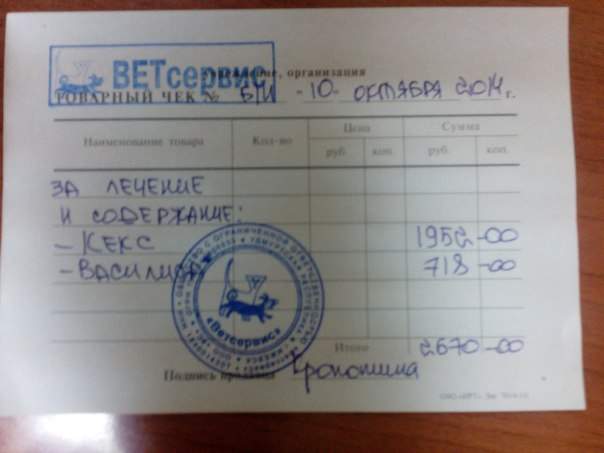 ВЕТсервис
организация
ТОВАРНЫЙ ЧЕК № Б/Н "10" ОКТЯБРЯ 2014 г.
Наименование товара Кол-во Цена Сумма
руб. коп. руб. коп.
ЗА ЛЕЧЕНИЕ
И СОДЕРЖАНИЕ:
- КЕКС 1952-00
- ВАСИЛИСА 718-00
«Ветсервис»
Итого 2670-00
Подпись продавца